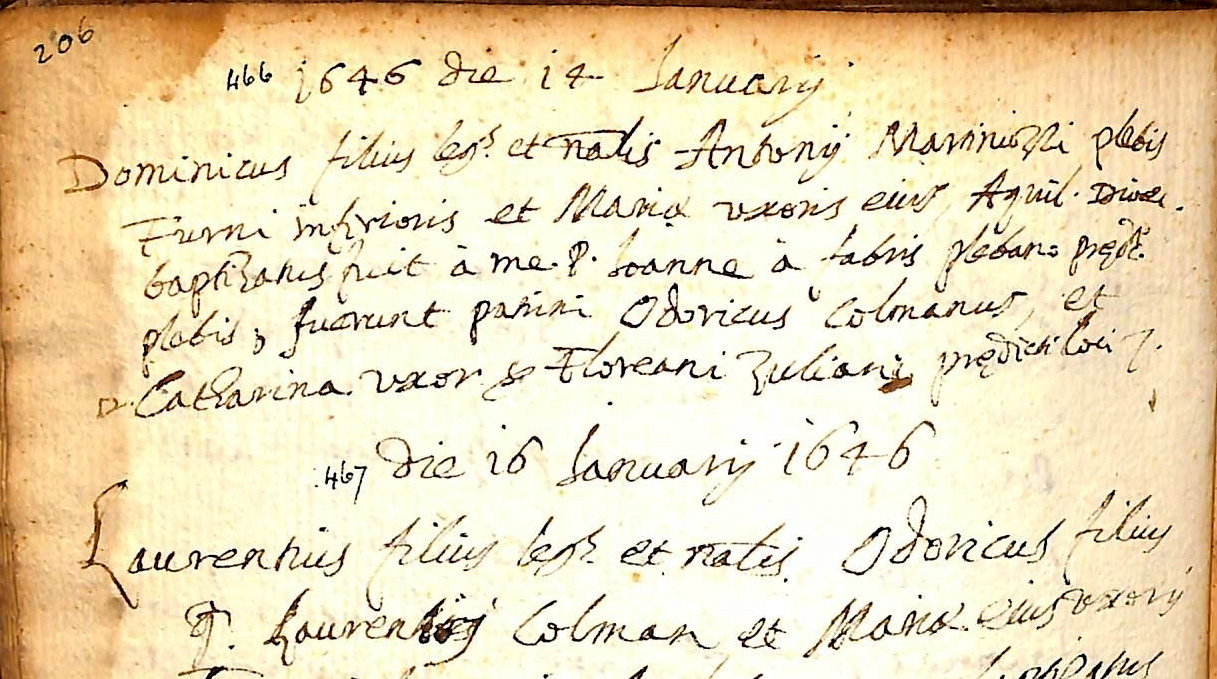 206
466 1646 die 14 Januarij
Dominicus filius legs. et nalis Antonij Marinuzzi plebis
Furni inferioris et Mariæ uxoris eius, Aquil. Dioec.
baptizatus fuit à me. P. Joanne à fabris plebano pręd.
plebis, fuerunt patrini Odoricus Colmanus, et
D. Catharina uxor Floreani Zuliani prędicti loci
467 die 16 Januarij 1646
Laurentius filius legs. et natis. Odoricus filius
q. Laurentij Colman et Mariæ eius uxoris